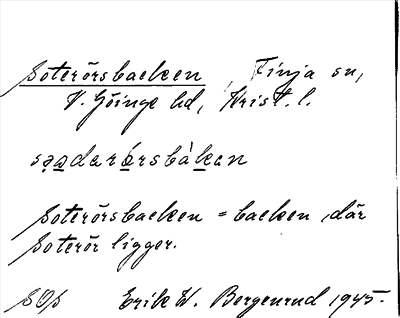 Soterörsbacken, Finja sn,
V. Göinge hd, Krist. l.
sǫa̱darö̱rsbàḵan
Soterörsbacken = backen, där
Soterör ligger.
SOs Erik W. Bergenrud 1945.